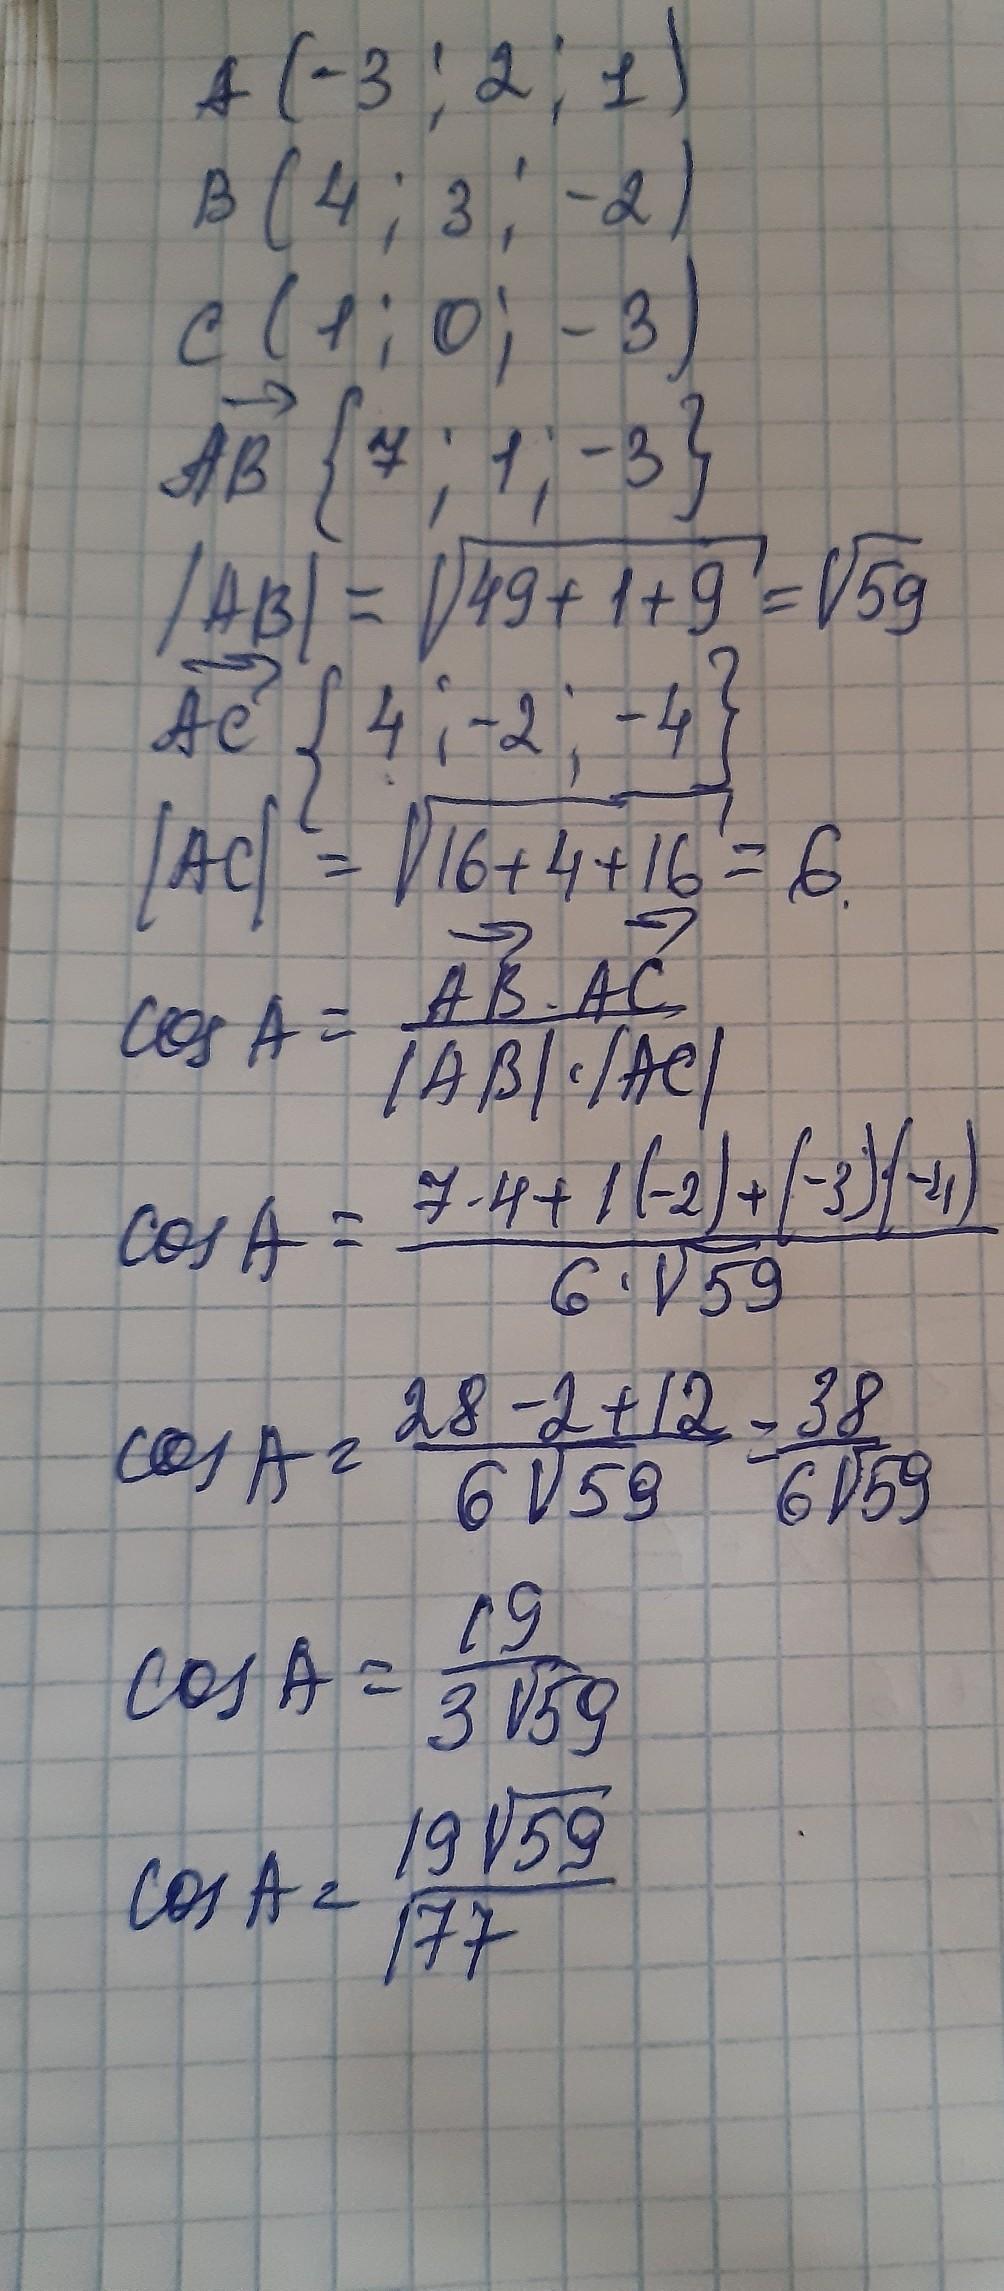 A (-3 ; 2 ; 1)
B ( 4 ; 3 ; -2)
C ( 1 ; 0 ; -3)
AB→ {7 ; 1 ; -3}
|AB| = √(49+1+9) = √59
AC→ {4 ; -2 ; -4}
|AC| = √(16+4+16) = 6.
cos A = (AB→ · AC→) / (|AB| · |AC|)
cos A = (7·4+1(-2)+(-3)(-4)) / (6·√59)
cos A = (28-2+12) / (6√59) = 38 / (6√59)
cos A = 19 / (3√59)
cos A = 19√59 / 177